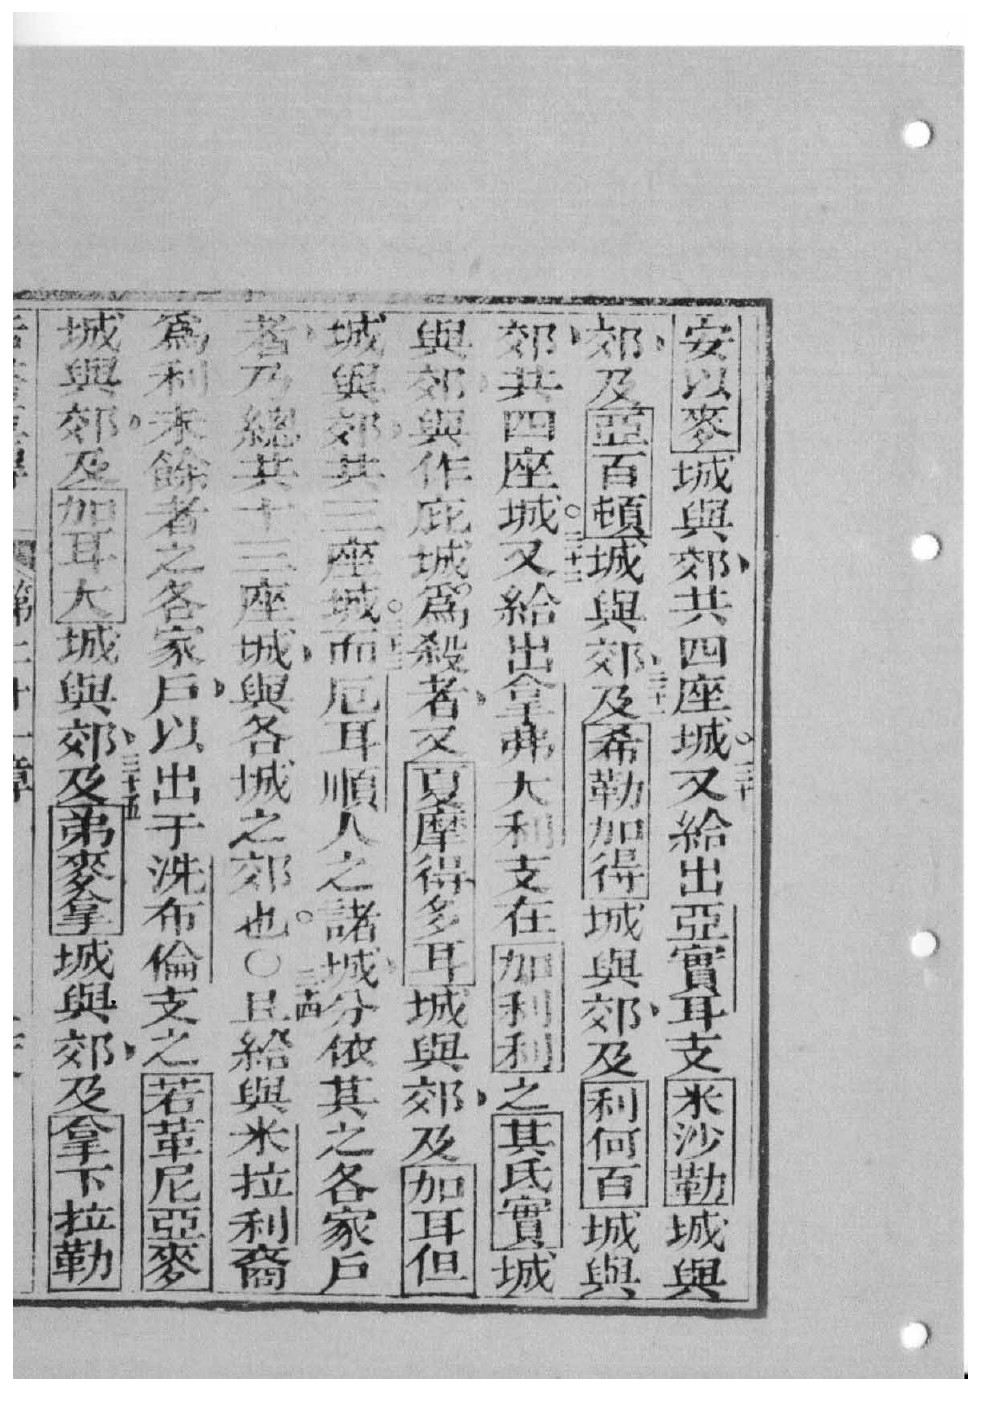 安以麥城與郊共四座城。三十又給出亞實耳支米沙勒城與
郊、及亞百頓城與郊、三十一及希勒加得城與郊、及利何百城與
郊、共四座城。三十二又給出拿弗大利支在加利利之其氏實城
與郊、與作庇城。爲殺者、又夏摩得多耳城與郊、及加耳但
城與郊、共三座城。三十三而厄耳順人之諸城、分依其之各家戶
者、乃總共十三座城、與各城之郊也。〇三十四且給與米拉利裔
爲利未餘者之各家戶、以出于洗布倫支之若革尼亞麥
城與郊、及加耳大城與郊、三十五及弟麥拿城與郊、及拿下拉勒
第二十一章